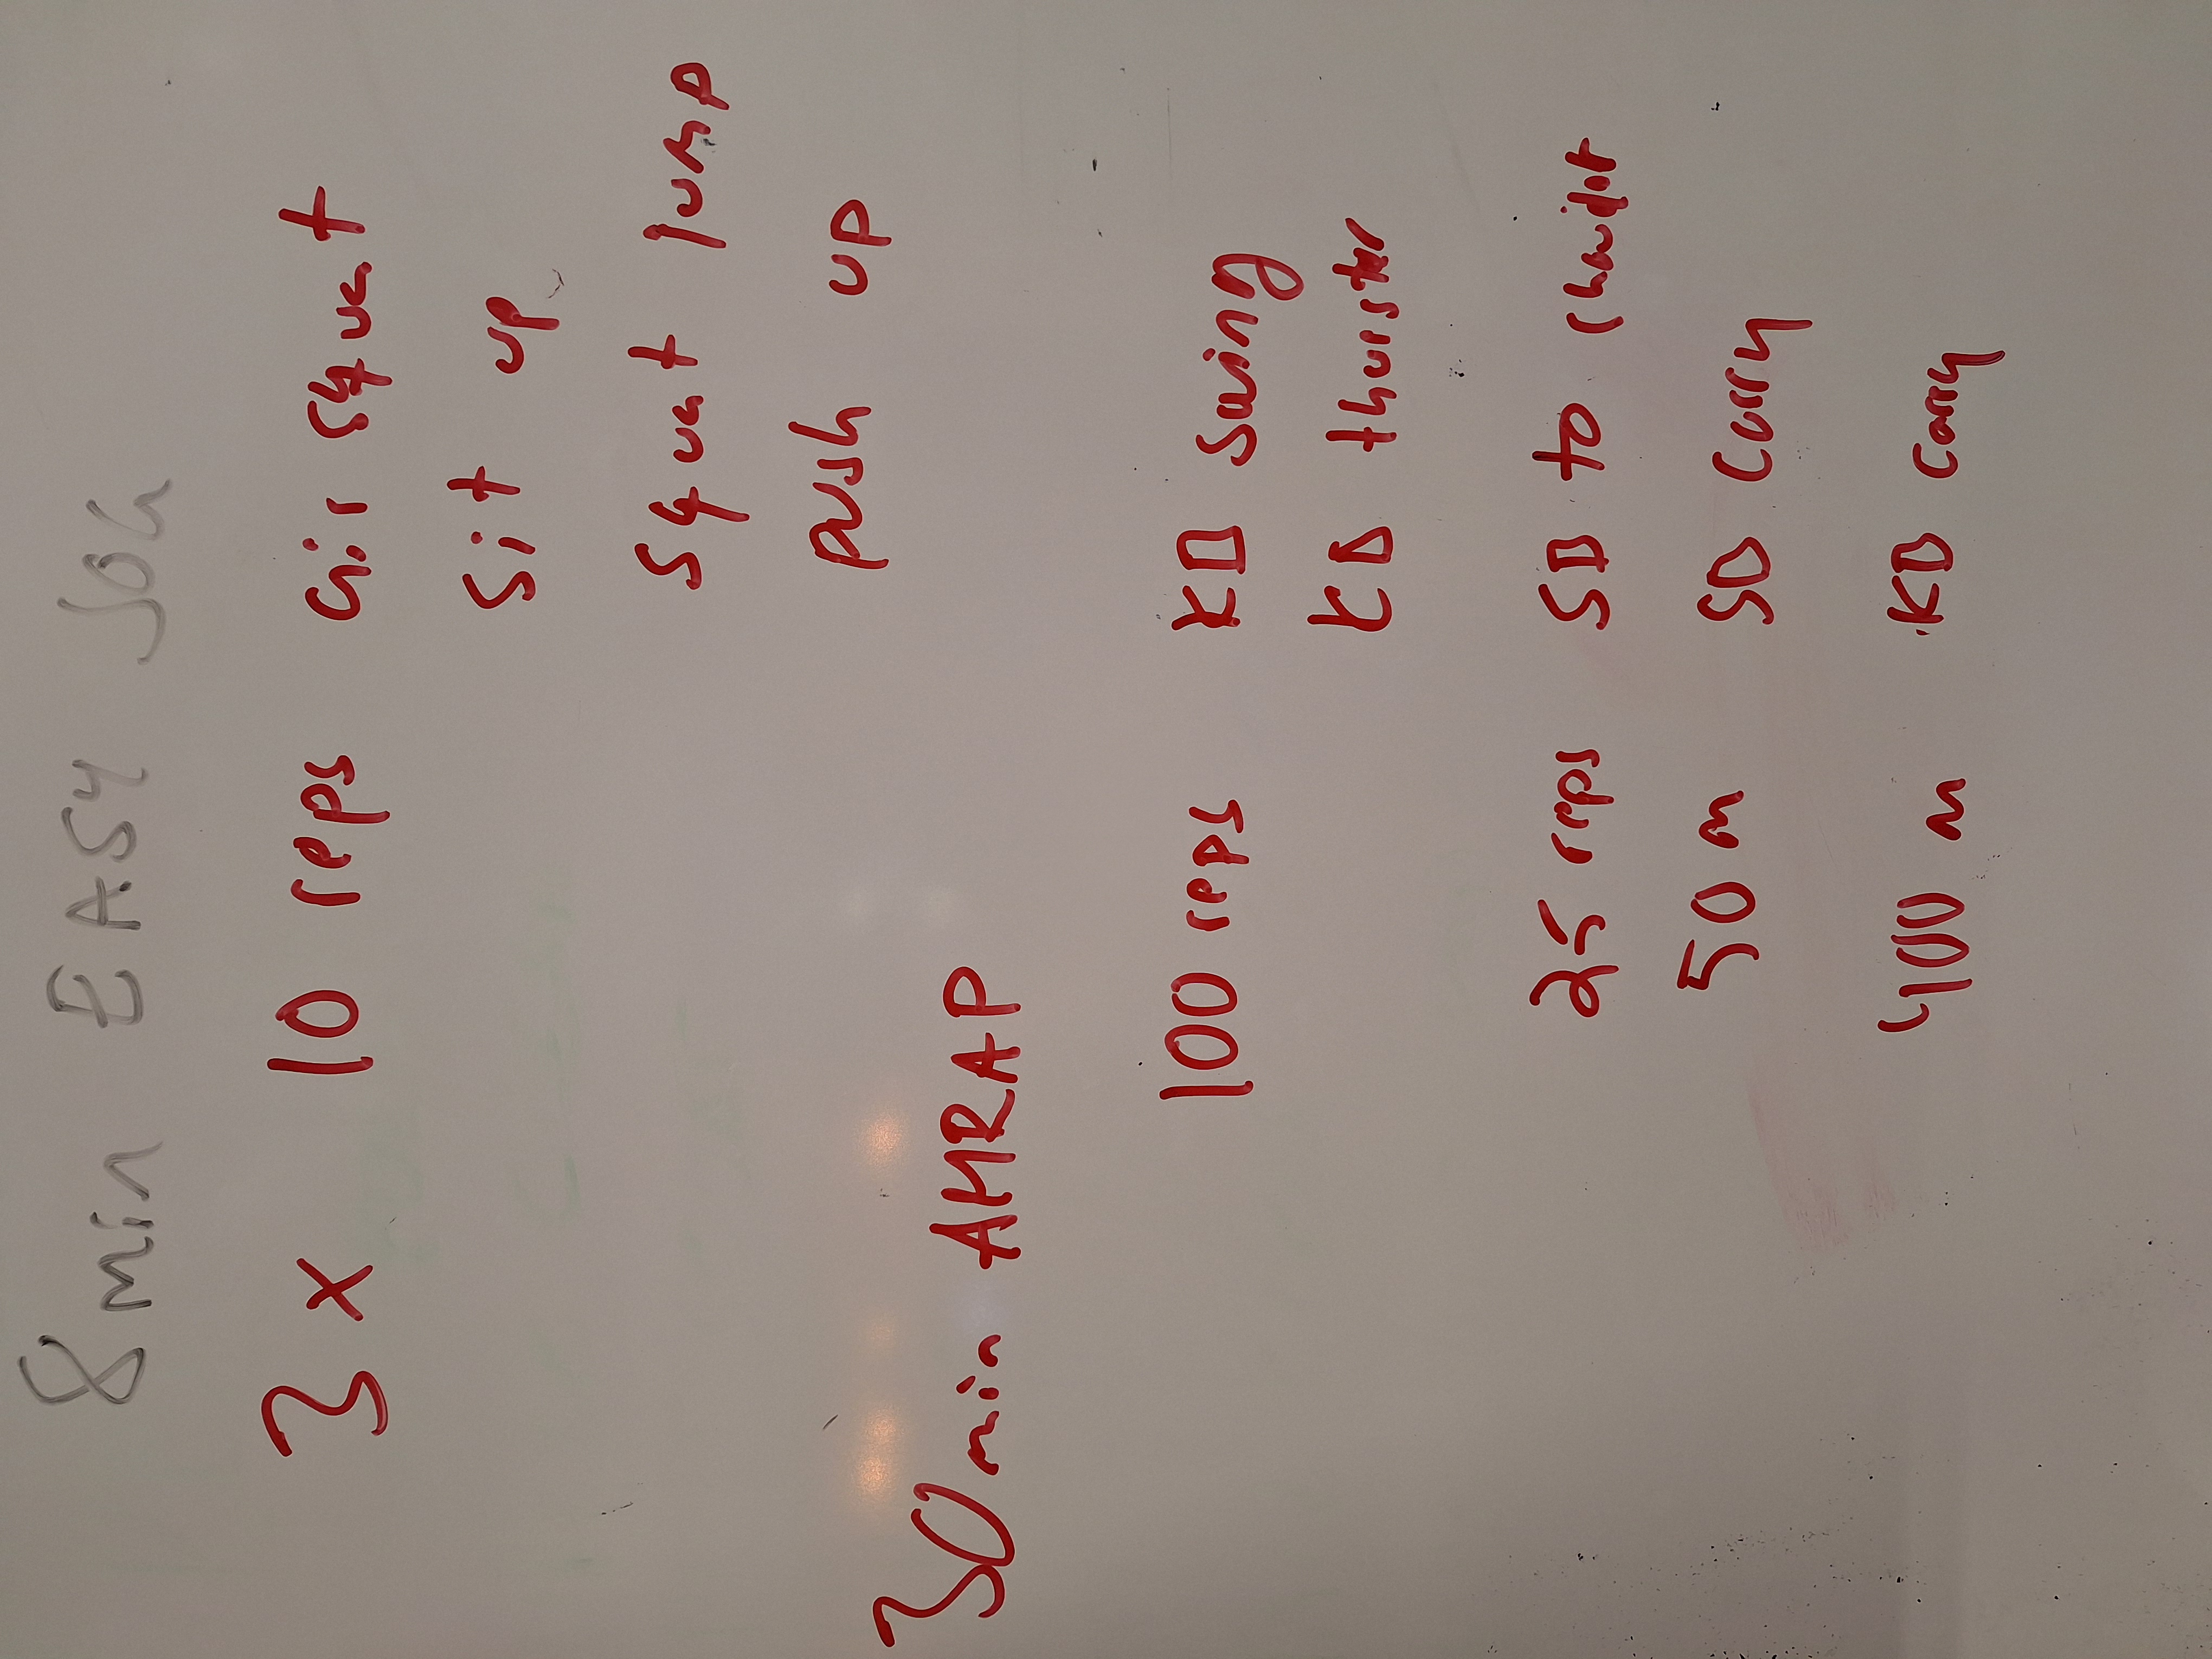 8 min EASY
3 x 10 reps air squat
sit up
squat jump
push up
30 min AMRAP
100 reps KB swing
KB thurster
25 reps SB to
50 m SB carry
400 m KB carry